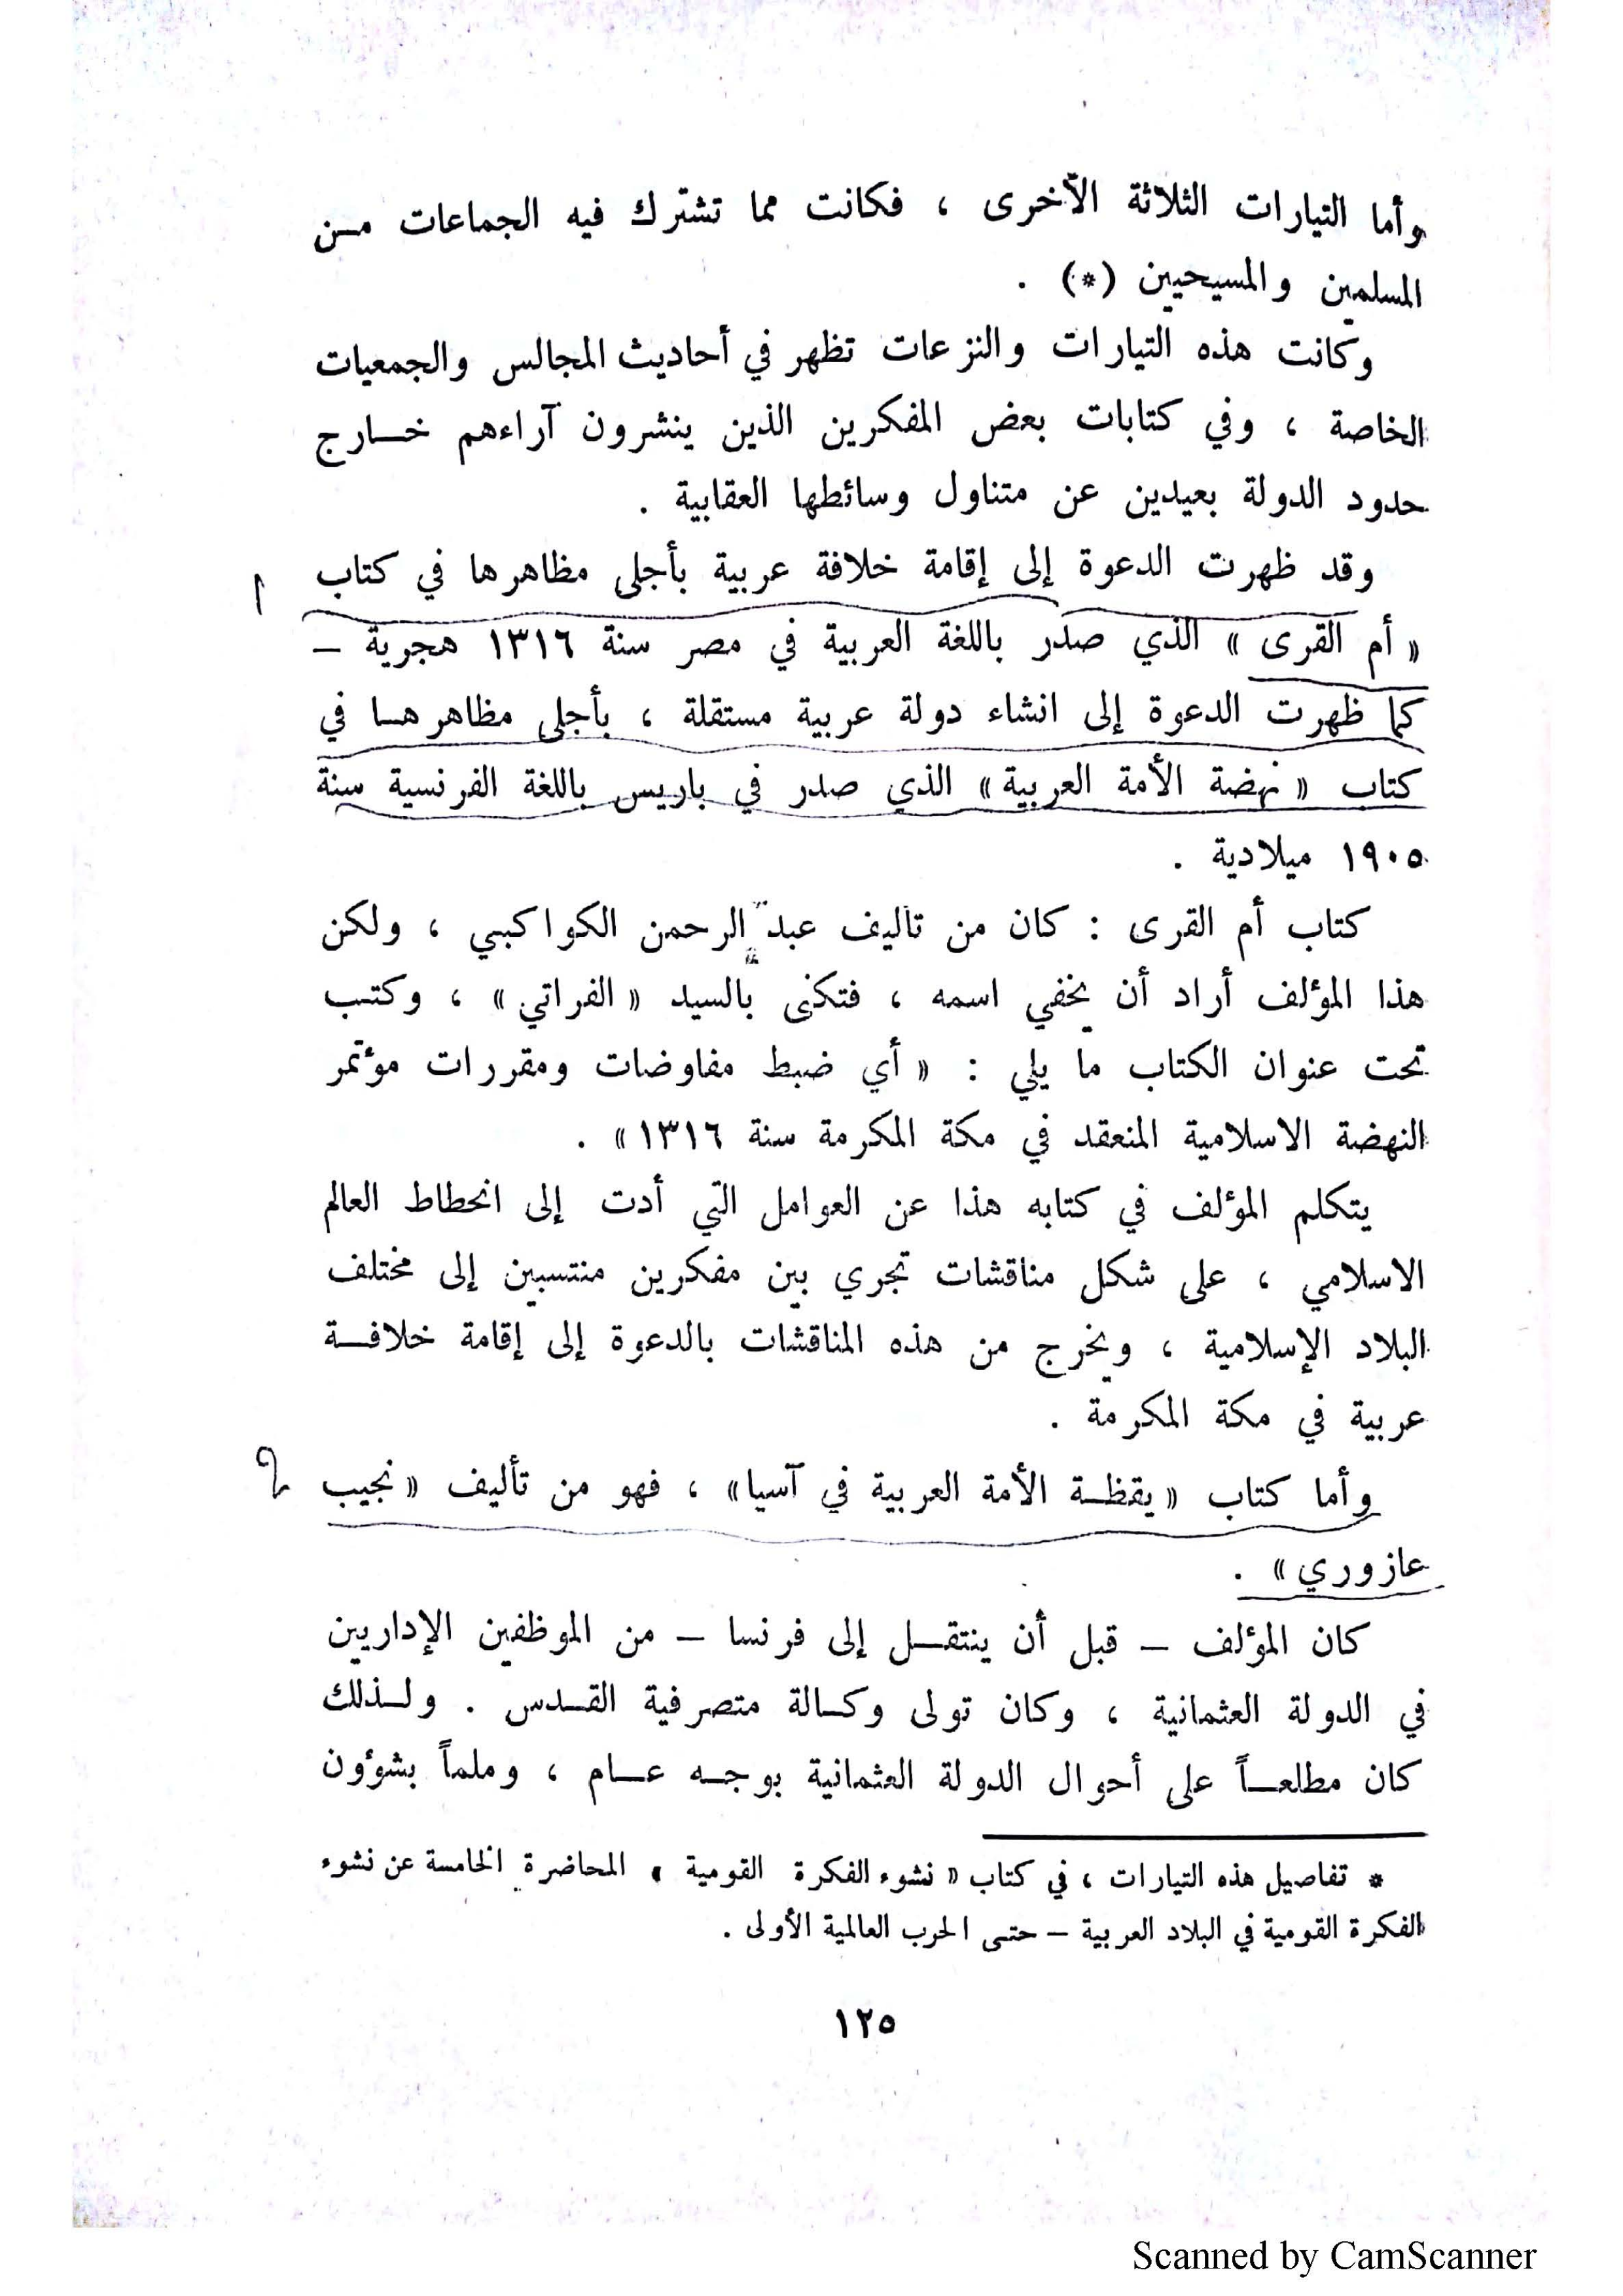 وأما التيارات الثلاثة الأخرى ، فكانت مما تشترك فيه الجماعات من
المسلمين والمسيحيين (*) .
وكانت هذه التيارات والنزعات تظهر في أحاديث المجالس والجمعيات
الخاصة ، وفي كتابات بعض المفكرين الذين ينشرون آراءهم خارج
حدود الدولة بعيدين عن متناول وسائطها العقابية .
وقد ظهرت الدعوة إلى إقامة خلافة عربية بأجلى مظاهرها في كتاب
« أم القرى » الذي صدر باللغة العربية في مصر سنة ١٣١٦ هجرية –
كما ظهرت الدعوة إلى انشاء دولة عربية مستقلة ، بأجلى مظاهرها في
كتاب « نهضة الأمة العربية » الذي صدر في باريس باللغة الفرنسية سنة
١٩٠٥ ميلادية .
كتاب أم القرى : كان من تأليف عبد الرحمن الكواكبي ، ولكن
هذا المؤلف أراد أن يخفي اسمه ، فتكنى بالسيد « الفراتي » ، وكتب
تحت عنوان الكتاب ما يلي : « أي ضبط مفاوضات ومقررات مؤتمر
النهضة الاسلامية المنعقد في مكة المكرمة سنة ١٣١٦ » .
يتكلم المؤلف في كتابه هذا عن العوامل التي أدت إلى انحطاط العالم
الاسلامي ، على شكل مناقشات تجري بين مفكرين منتسبين إلى مختلف
البلاد الإسلامية ، ويخرج من هذه المناقشات بالدعوة إلى إقامة خلافة
عربية في مكة المكرمة .
وأما كتاب « يقظة الأمة العربية في آسيا » ، فهو من تأليف « نجيب
عازوري » .
كان المؤلف – قبل أن ينتقل إلى فرنسا – من الموظفين الإداريين
في الدولة العثمانية ، وكان تولى وكالة متصرفية القدس . ولذلك
كان مطلعاً على أحوال الدولة العثمانية بوجه عام ، وملماً بشؤون
* تفاصيل هذه التيارات ، في كتاب « نشوء الفكرة القومية » المحاضرة الخامسة عن نشوء
الفكرة القومية في البلاد العربية – حتى الحرب العالمية الأولى .
١٢٥
Scanned by CamScanner